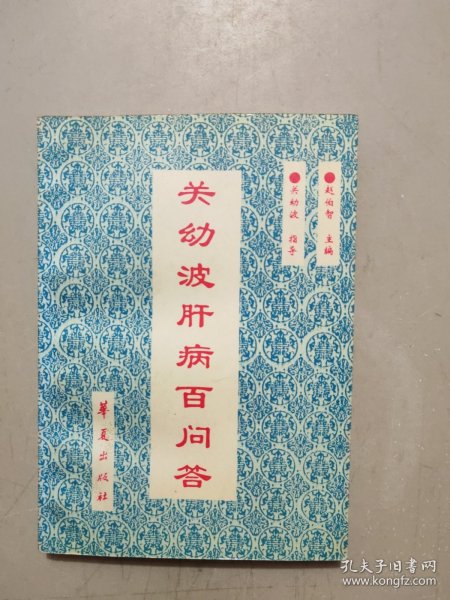 赵伯智 主编
关幼波 指导
关幼波肝病百问答
华夏出版社
孔夫子旧书网
www.kongfz.com